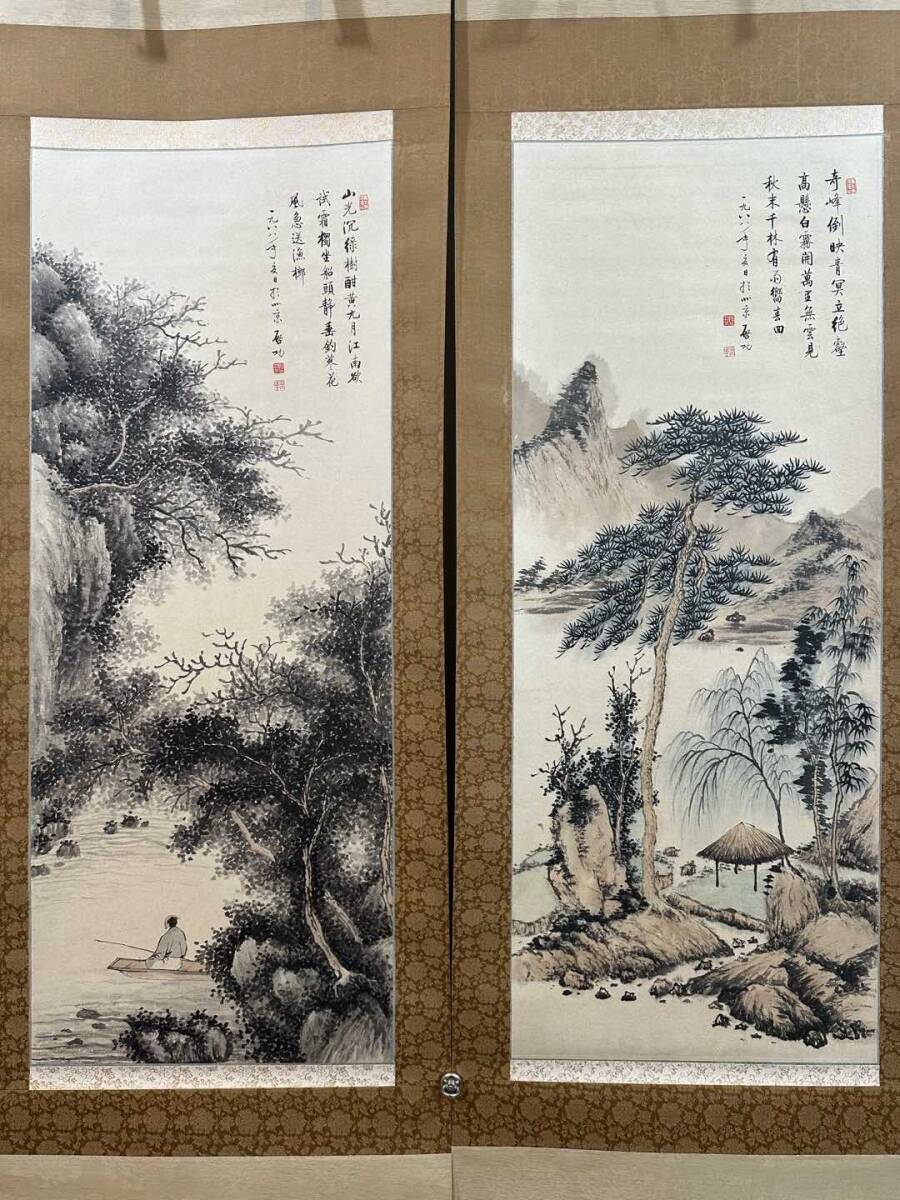 奇峰倒映青冥立絶壑
高懸白霧開萬里無雲見
秋末千林有雨響春回
一九八八年夏日於北京 啓功
山光沉綠樹酣黃九月江南欲
試霜獨坐船頭靜垂釣蓼花
風急送漁榔
一九八八年夏日於北京 啓功